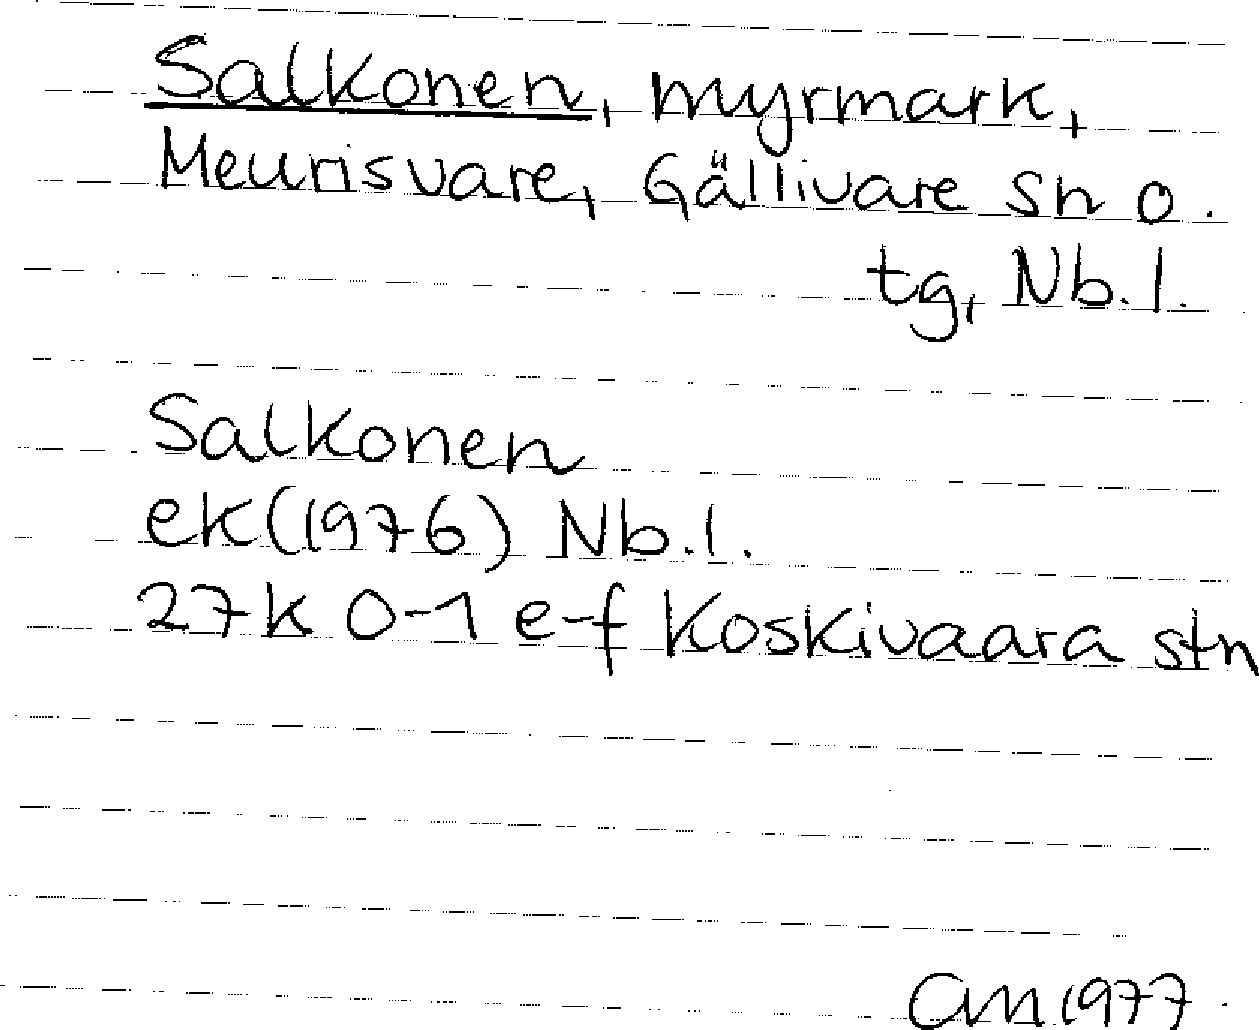 Salkonen, myrmark,
Meurisvare, Gällivare sn o.
tg, Nb.l.
Salkonen
ek(1976) Nb.l.
27k 0-1 e-f Koskivaara stn
1977.